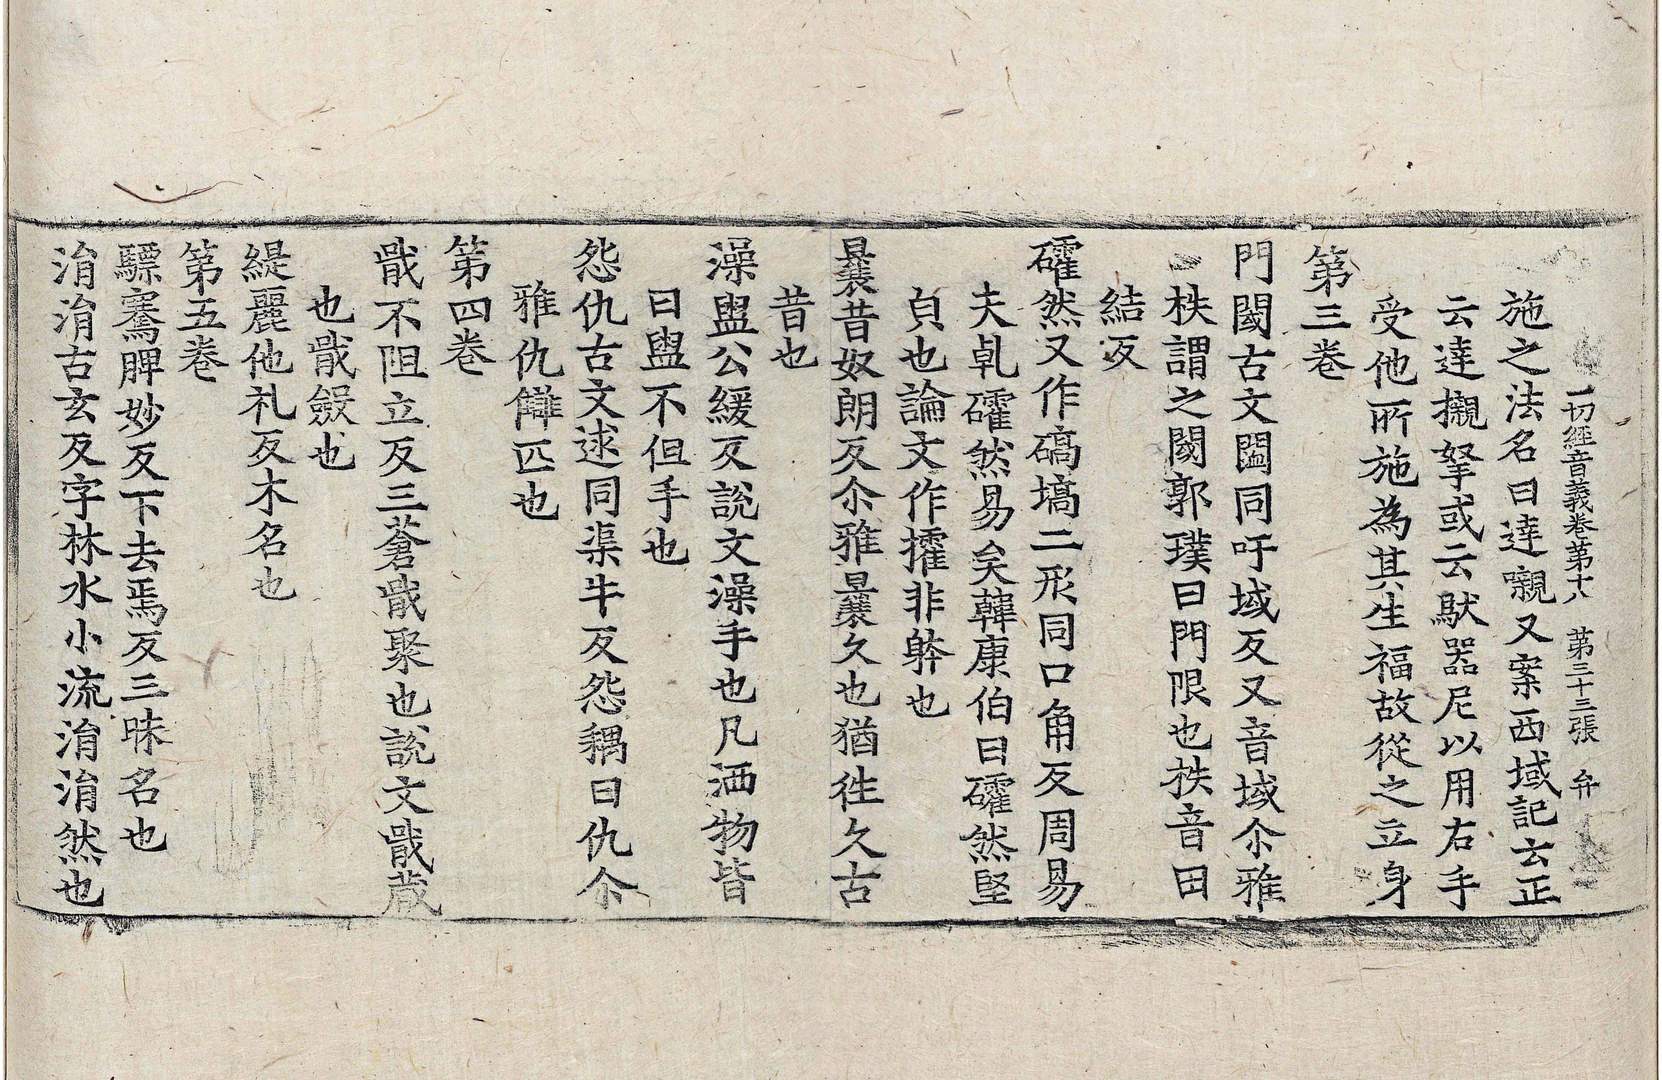 一切經音義卷第十八 第三十三張 弁
施之法名曰達嚫又案西域記云正
云達攡拏或云䭾器尼以用右手
受他所施為其生福故從之立身
第三卷
門閫古文閫同吁域反又音域尒雅
柣謂之閾郭璞曰門限也柣音田
結反
礭然又作碻塙二形同口角反周易
夫乹礭然易矣韓康伯曰礭然堅
皃也論文作搉非躰也
曩昔奴朗反尒雅曩久也猶徃久古
昔也
澡盥公緩反說文澡手也凡洒物皆
曰盥不但手也
怨仇古文逑同渠牛反怨耦曰仇尒
雅仇讎匹也
第四卷
戢不阻立反三蒼戢聚也說文戢蔵
也戢斂也
緹麗他礼反木名也
第五卷
驃騫脾妙反下去焉反三昧名也
涓涓古玄反字林水小流涓涓然也